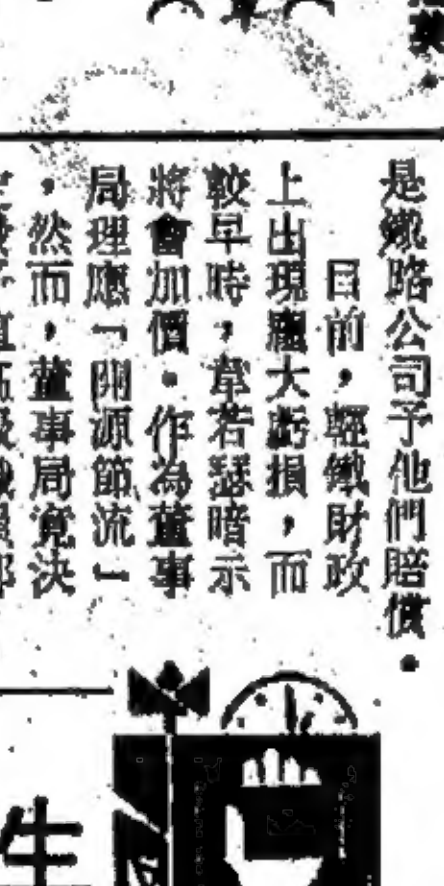 是鐵路公司予他們賠償。
目前，輕鐵財政
上出現龐大虧損，而
較早時，韋若瑟暗示
將會加價。作為董事
局理應「開源節流」
，然而，董事局竟決
生